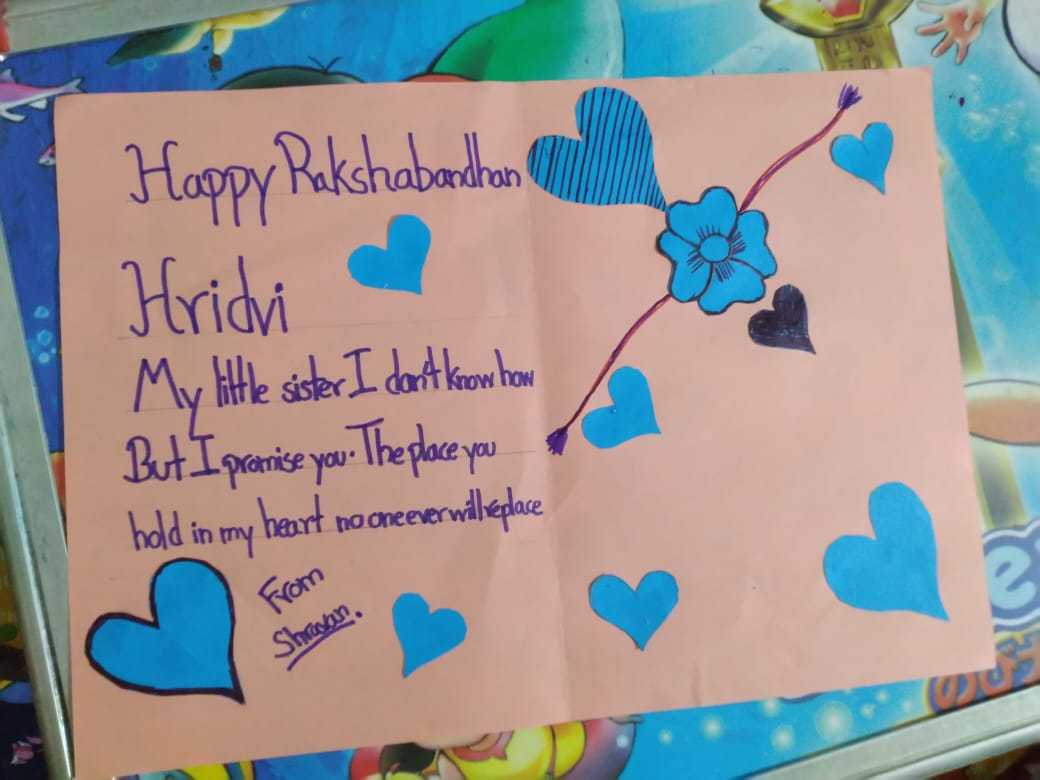 Happy Rakshabandhan
Hridvi
My little sister I don't know how
But I promise you. The place you
hold in my heart no one ever will replace
From
Shravan.